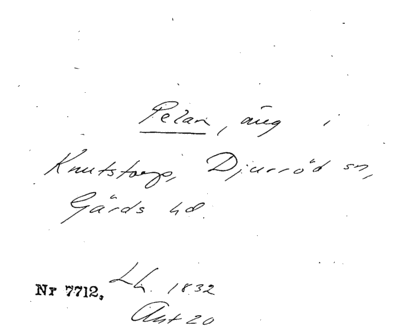 Pelan, äng i
Knutstorp, Djurröd sn,
Gärds hd.
Nr 7712, Lh. 1832
Akt 20